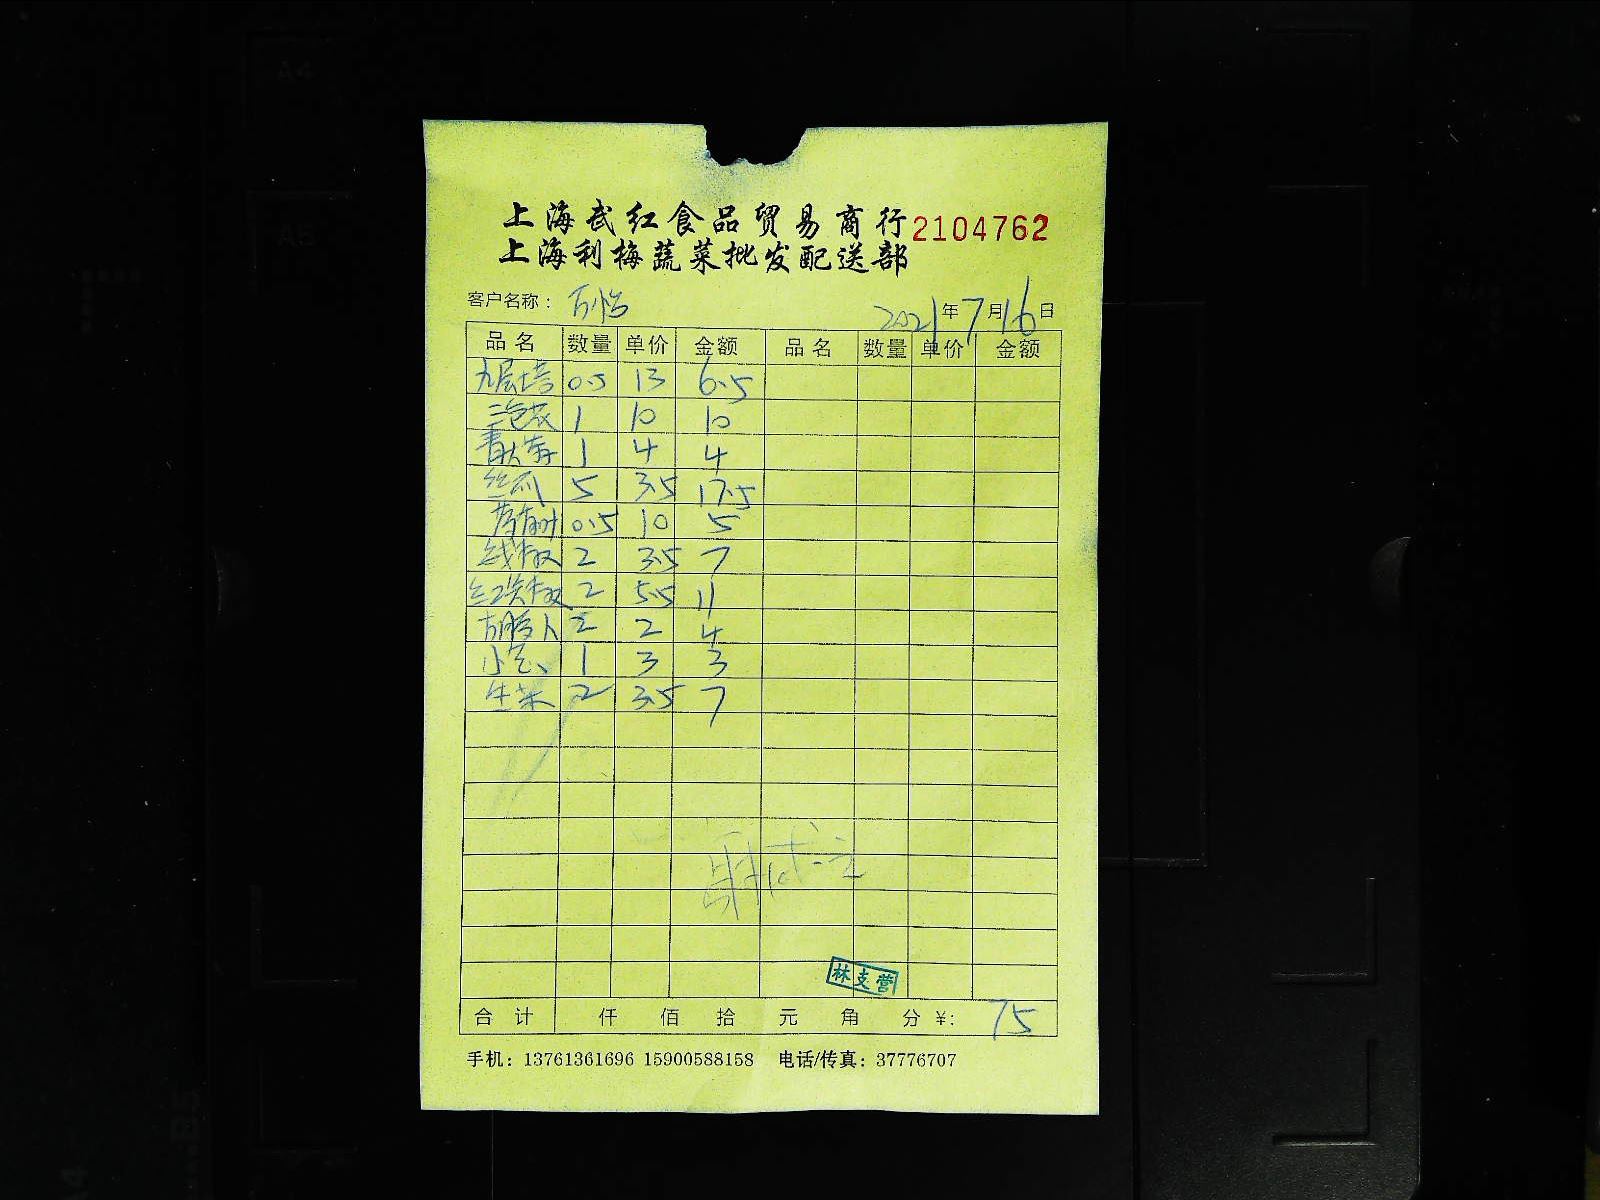 上海武红食品贸易商行 2104762
上海利梅蔬菜批发配送部
客户名称： 2021年7月16日
品名 数量 单价 金额 品名 数量 单价 金额
九层塔 0.5 13 6.5
三色花 1 10 10
青大蒜 1 4 4
丝瓜 5 3.5 17.5
0.5 10 5
线椒 2 3.5 7
红尖椒 2 5.5 11
胡萝卜 2 2 4
小葱 1 3 3
生菜 2 3.5 7
林支营
合计 仟 佰 拾 元 角 分 ¥: 75
手机：13761361696 15900588158 电话/传真：37776707